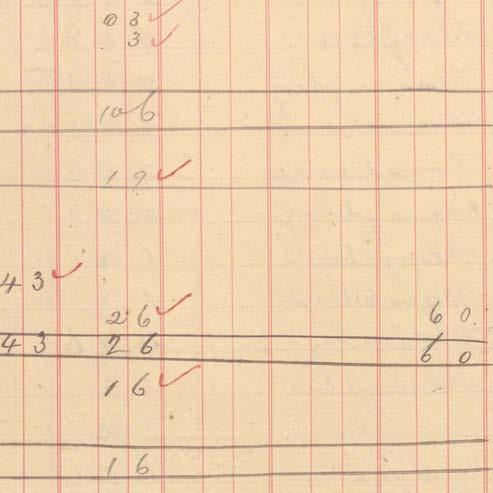 03 ✓
3 ✓
106
19 ✓
43 ✓
26 ✓ 60
43 26 60
16 ✓
16